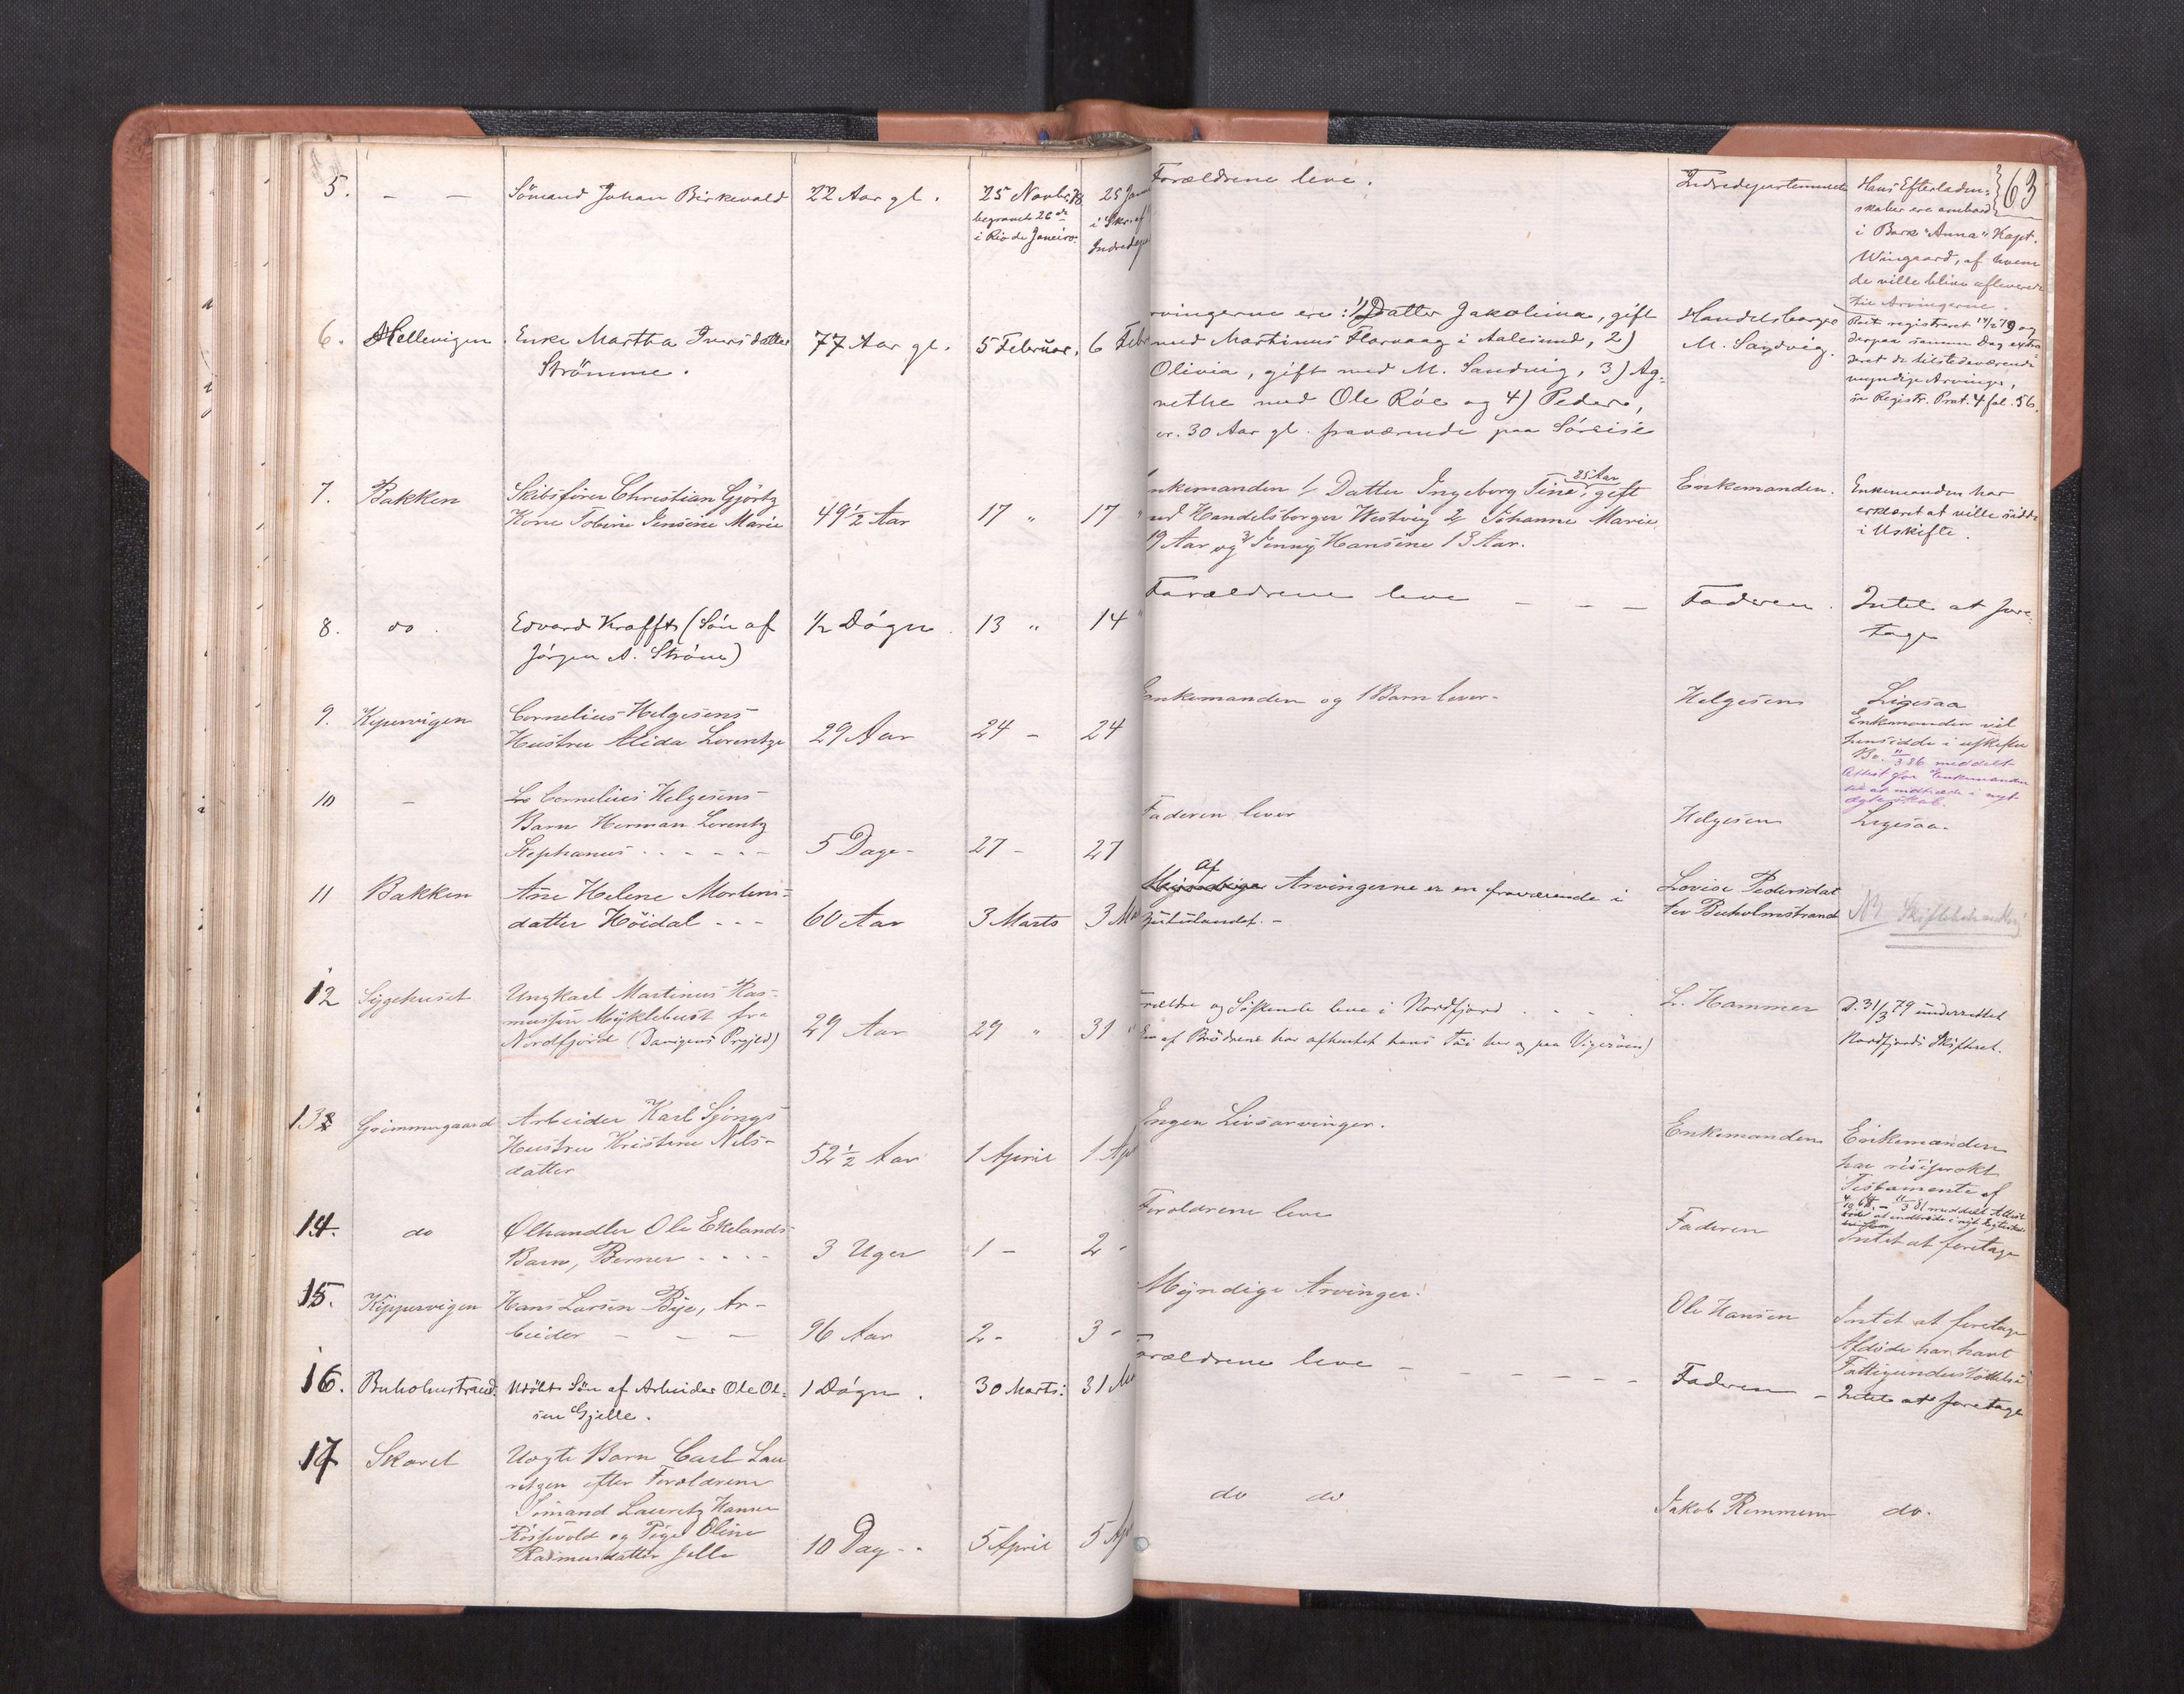 63
5. — — Sömand Johan Birkevold 22 Aar gl. 25 Novbr. 78 25 Janu
begravet 26de i Skr. af
i Rio de Janeiro. Indredep
Forældrene leve. Indredepartementet Hans Efterladen-
skaber ere ombord
i Bark "Anna" Kapt.
Wingaard, af hvem
de ville blive afleverede
til Arvingerne.
6. Hellevigen Enke Martha Iversdatter 77 Aar gl. 5 Februar. 6 Febr
Strömme.
rvingerne ere: 1) Datter Jakolina, gift Handelsborger
med Martinus Florvaag i Aalesund, 2) M. Sandvig.
Olivia, gift med M. Sandvig, 3) Ag-
nethe med Ole Röe og 4) Peder,
30 Aar gl. fraværende paa Söreise
Boet registreret 14/2 79 og
derpaa samme Dag extra-
deret de tilstedeværende
myndige Arvinger,
se Registr. Prot. 4 fol. 56.
7. Bakken Skibsförer Christian Gjörtz
Kone Tobine Jensine Marie 49½ Aar 17 " 17 "
nkemanden 1/ Datter Ingeborg Tine, 25 Aar gift Enkemanden. Enkemanden har
ed Handelsborger Westvig 2/ Johanne Marie erklæret at ville sidde
19 Aar og 3/ Jenny Hansine 13 Aar. i Uskifte.
8. do. Edvard Krafft (Sön af ½ Dögn. 13 " 14 "
Jörgen A. Ström)
Forældrene leve — — — Faderen. Intet at fore-
tage
9. Kipervigen Cornelius Helgesens
Hustru Alida Lorentze 29 Aar 24 - 24
Enkemanden og 1 Barn lever- Helgesen Ligesaa
Enkemanden vil
hensidde i uskiftet
Bo. 11/3 86 meddelt
Attest for Enkemanden
til at indtræde i nyt
Ægteskab.
10 — Cornelius Helgesens
Barn Herman Lorentz
Stephanus - - - - - 5 Dage- 27 - 27
Faderen lever Helgesen Ligesaa.
11 Bakken Ane Helene Mortens-
datter Höidal - - - 60 Aar 3 Marts 3 M
Af
Myndige Arvingerne er en fraværende i Lovise Pedersdat-
Udlandet.- ter Buholmstrand NB Skiftebehandling
12 Sygehuset Ungkarl Martinus Ras-
mussen Myklebust fra
Nordfjord (Davigens Prgjld) 29 Aar 29 " 31 "
rældre og Söskende leve i Nordfjord . . . . L. Hammer D. 31/3 79 underrettet
En af Brödrene har afhentet hans Töi her og paa Vigeröen) Nordfjords Skifteret.
13 Grimmergaard Arbeider Karl Sjöngs
Hustru Kristine Nils-
datter 52½ Aar 1 April 1 Ap
Ingen Livsarvinger. Enkemanden Enkemanden
har
Testamente af
4/10 68. - 11/3 81 meddelt Attest
Intet at foretage
14. do Ölhandler Ole Ekelands
Barn, Berner - - - - 3 Uger 1 - 2 -
Foreldrene leve Faderen
15. Kippervigen Hans Larsen Bye, Ar-
beider — — — 96 Aar 2 - 3 -
Myndige Arvinger. Ole Hansen Intet at foretage
Afdöde har havt
Fattigunderstöttelse
16. Buholmstrand. Udöbt Sön af Arbeider Ole Ol- 1 Dögn. 30 Marts: 31 M
sen Gjelle.
orældrene leve — — — — — — Faderen — Intet at foretage
17 Skaret Uægte Barn Carl Lau
ritzen efter Forældrene
Sömand Lauritz Hansen
Rössevold og Pige Oline
Rasmusdatter Jelle 10 Dag - - 5 April 5 Ap
do do Jakob Remmem do.